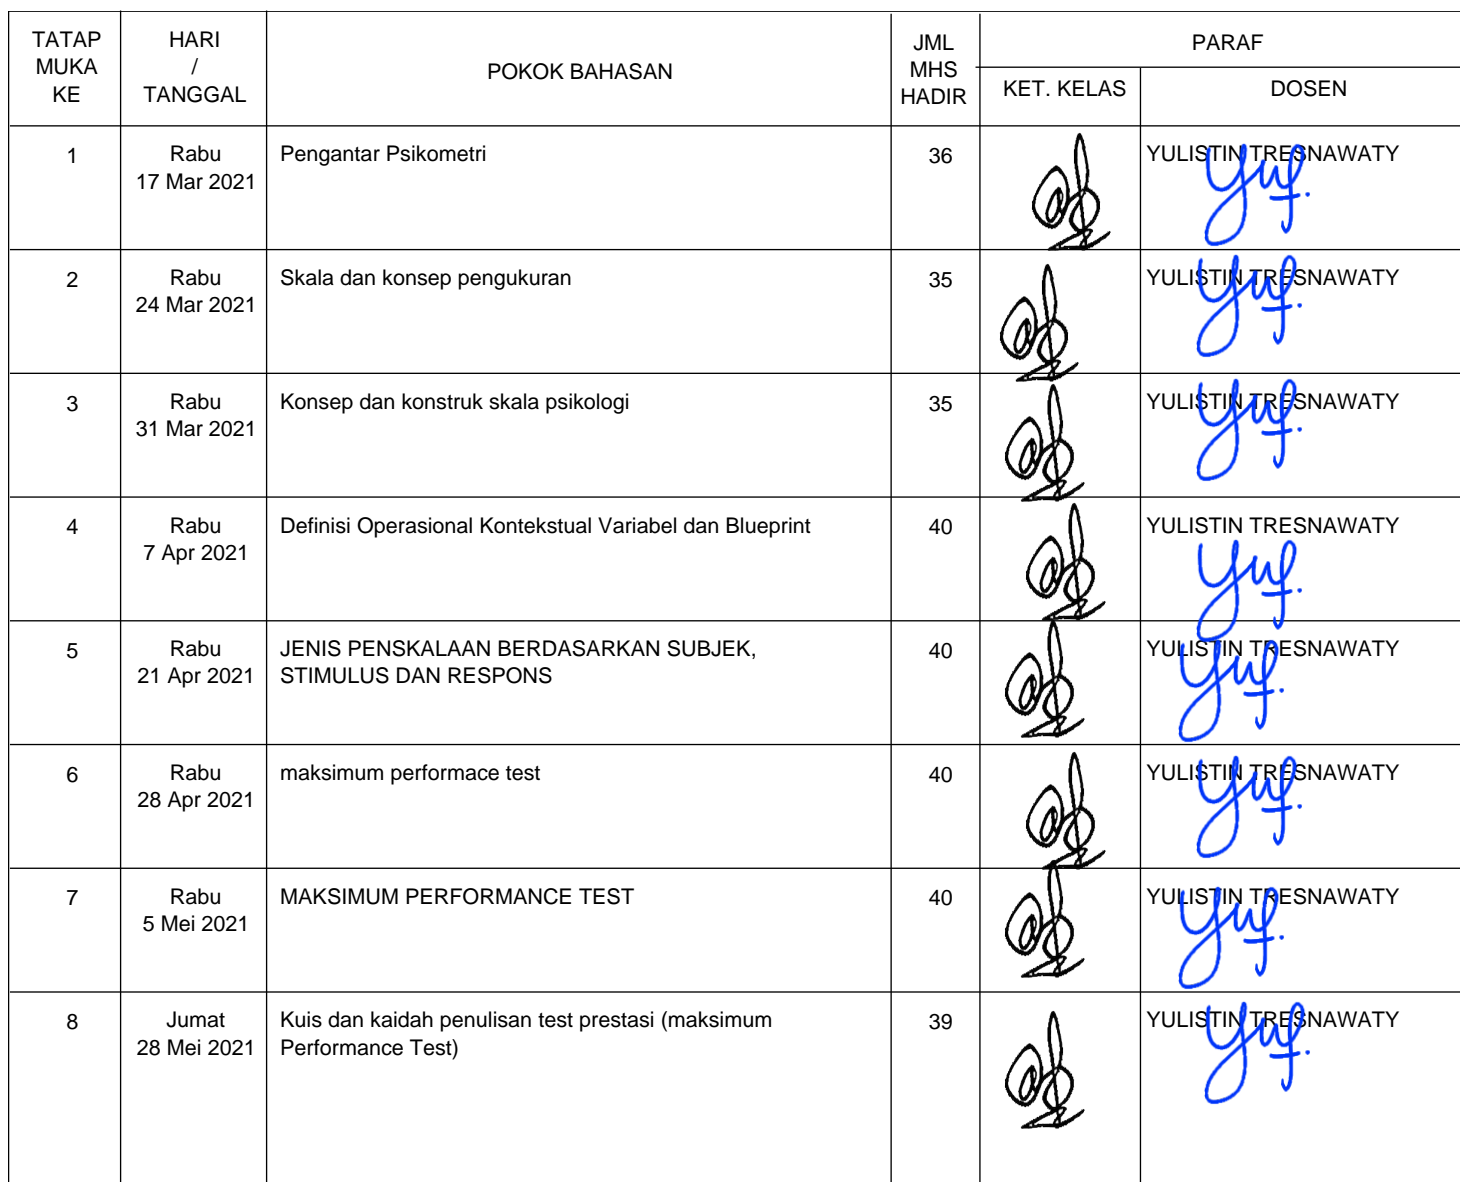 TATAP MUKA KE
HARI / TANGGAL
POKOK BAHASAN
JML MHS HADIR
PARAF
KET. KELAS
DOSEN
1
Rabu
17 Mar 2021
Pengantar Psikometri
36
YULISTIN TRESNAWATY
2
Rabu
24 Mar 2021
Skala dan konsep pengukuran
35
YULISTIN TRESNAWATY
3
Rabu
31 Mar 2021
Konsep dan konstruk skala psikologi
35
YULISTIN TRESNAWATY
4
Rabu
7 Apr 2021
Definisi Operasional Kontekstual Variabel dan Blueprint
40
YULISTIN TRESNAWATY
5
Rabu
21 Apr 2021
JENIS PENSKALAAN BERDASARKAN SUBJEK,
STIMULUS DAN RESPONS
40
YULISTIN TRESNAWATY
6
Rabu
28 Apr 2021
maksimum performace test
40
YULISTIN TRESNAWATY
7
Rabu
5 Mei 2021
MAKSIMUM PERFORMANCE TEST
40
YULISTIN TRESNAWATY
8
Jumat
28 Mei 2021
Kuis dan kaidah penulisan test prestasi (maksimum
Performance Test)
39
YULISTIN TRESNAWATY